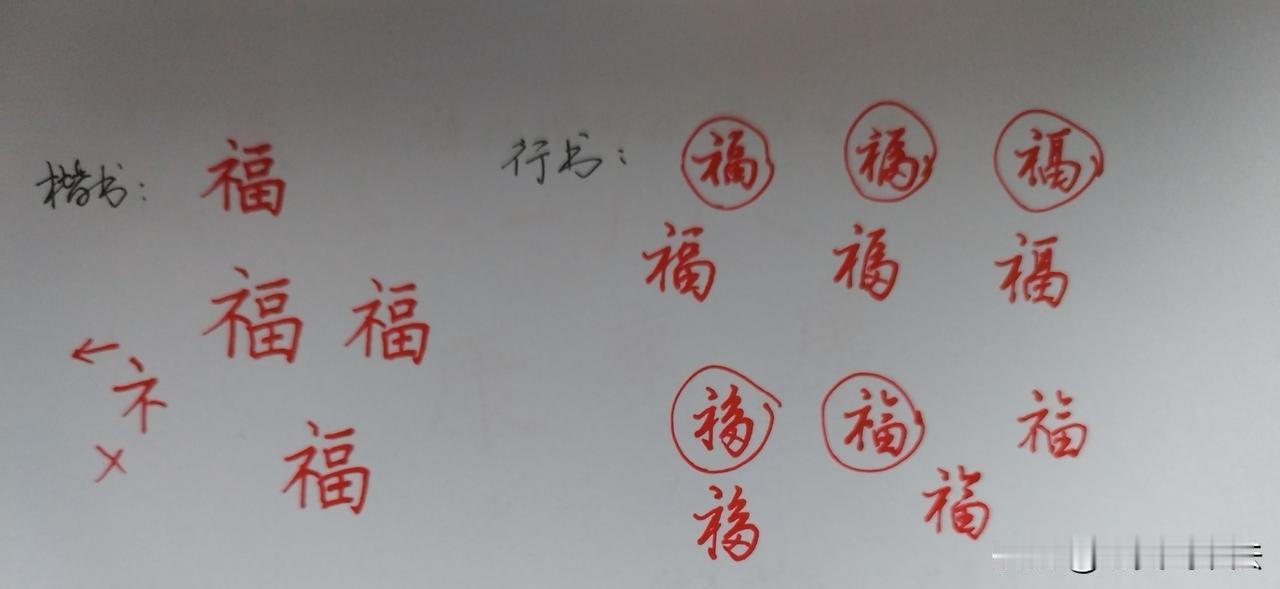 楷书： 福 行书： 福 福 福
福 福 福
福 福
← 礻
×
福 福 福
福
福 福